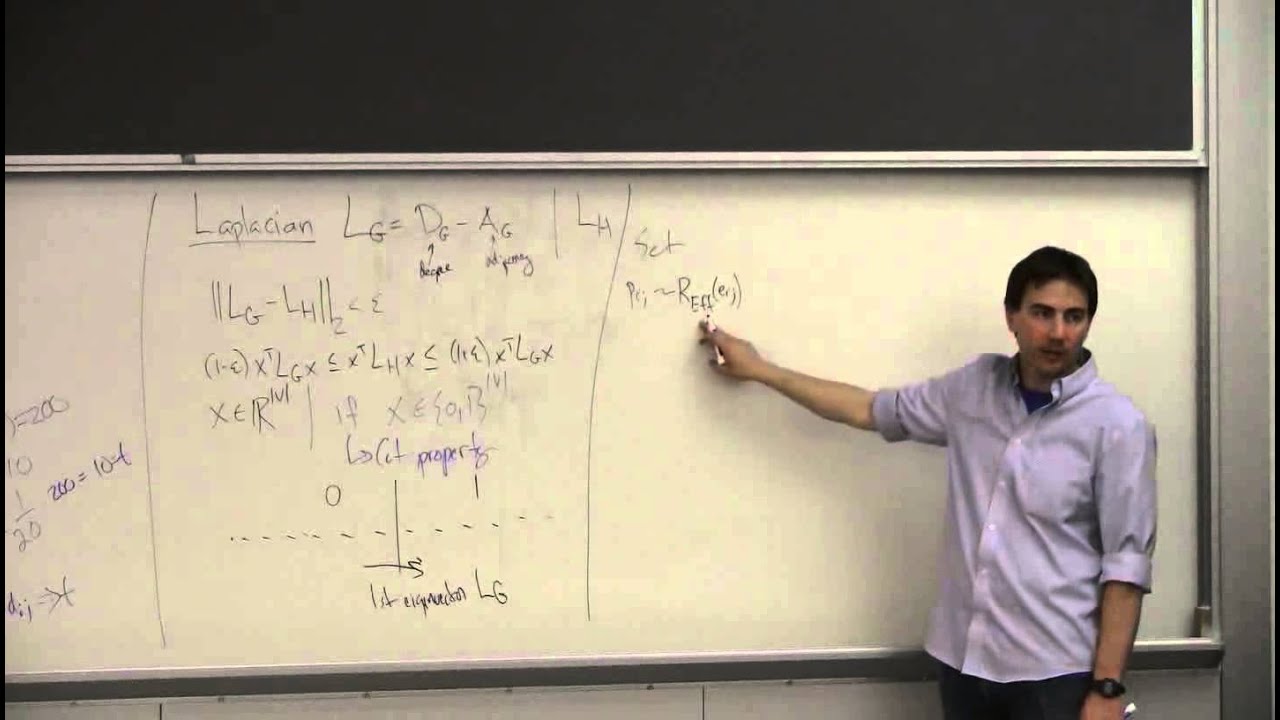 )=200
10
1/20 200 = 10·t
d_ij → t
Laplacian L_G = D_G - A_G | L_H
Degree adjacency
||L_G - L_H||_2 < ε
(1-ε) xᵀL_G x ≤ xᵀL_H x ≤ (1+ε) xᵀL_G x
x ∈ ℝ^|V| | if x ∈ {0,1}^|V|
↳ Cut property
0 1
1st eigenvector L_G
Set
P_ij ~ R_Eff(e_ij)